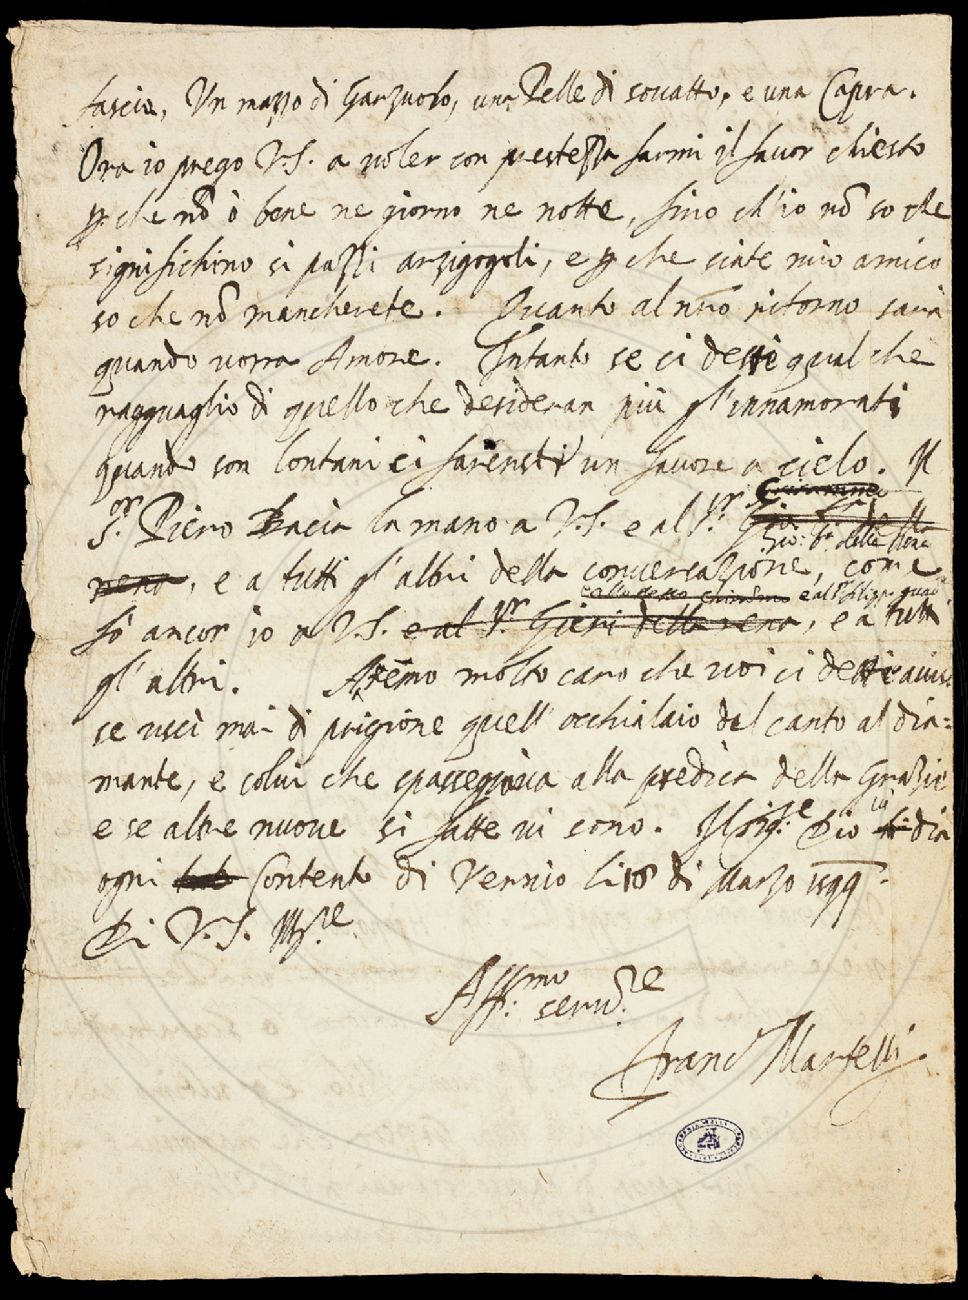 fascio, Un mazzo di Garzuolo, una Pelle di souatto, e una Capra.
Ora io prego V.S. a uoler con prestezza farmi il fauor chiesto
p che nõ ò bene ne giorno ne notte, sino ch'io nõ so che
significhino si pazzi arzigogoli, e p che siate mio amico
so che nõ mancherete. Quanto al nr̃o ritorno sarà
quando uorra Amore. Intanto se ci deste qual che
ragguaglio di quello che desideran più gl'innamorati
quando son lontani ci faresti un fauore a cielo. Il
S.or Piero Bacia la mano a V.S. e al S.r
Gio: b.a della Rena
rena, e a tutti gl'altri della conuersazione, come
e al S.r Filippo
fo ancor io a V.S. e al S.r Gieri della rena, e a tutti
gl'altri. Aremo molto caro che uoi ci deste auuiso
se uscì mai di prigione quell' occhialaio dal canto al dia=
mante, e colui che spasseggiaua alla predica della Grazie
e se altre nuoue si fatte ui sono. Il Sig.re Dio ui dia
ogni Contento di Vernio li 18 di Marzo 1599.
Di V.S. Ill.re
Aff.mo seru.re
Franc.o Martelli